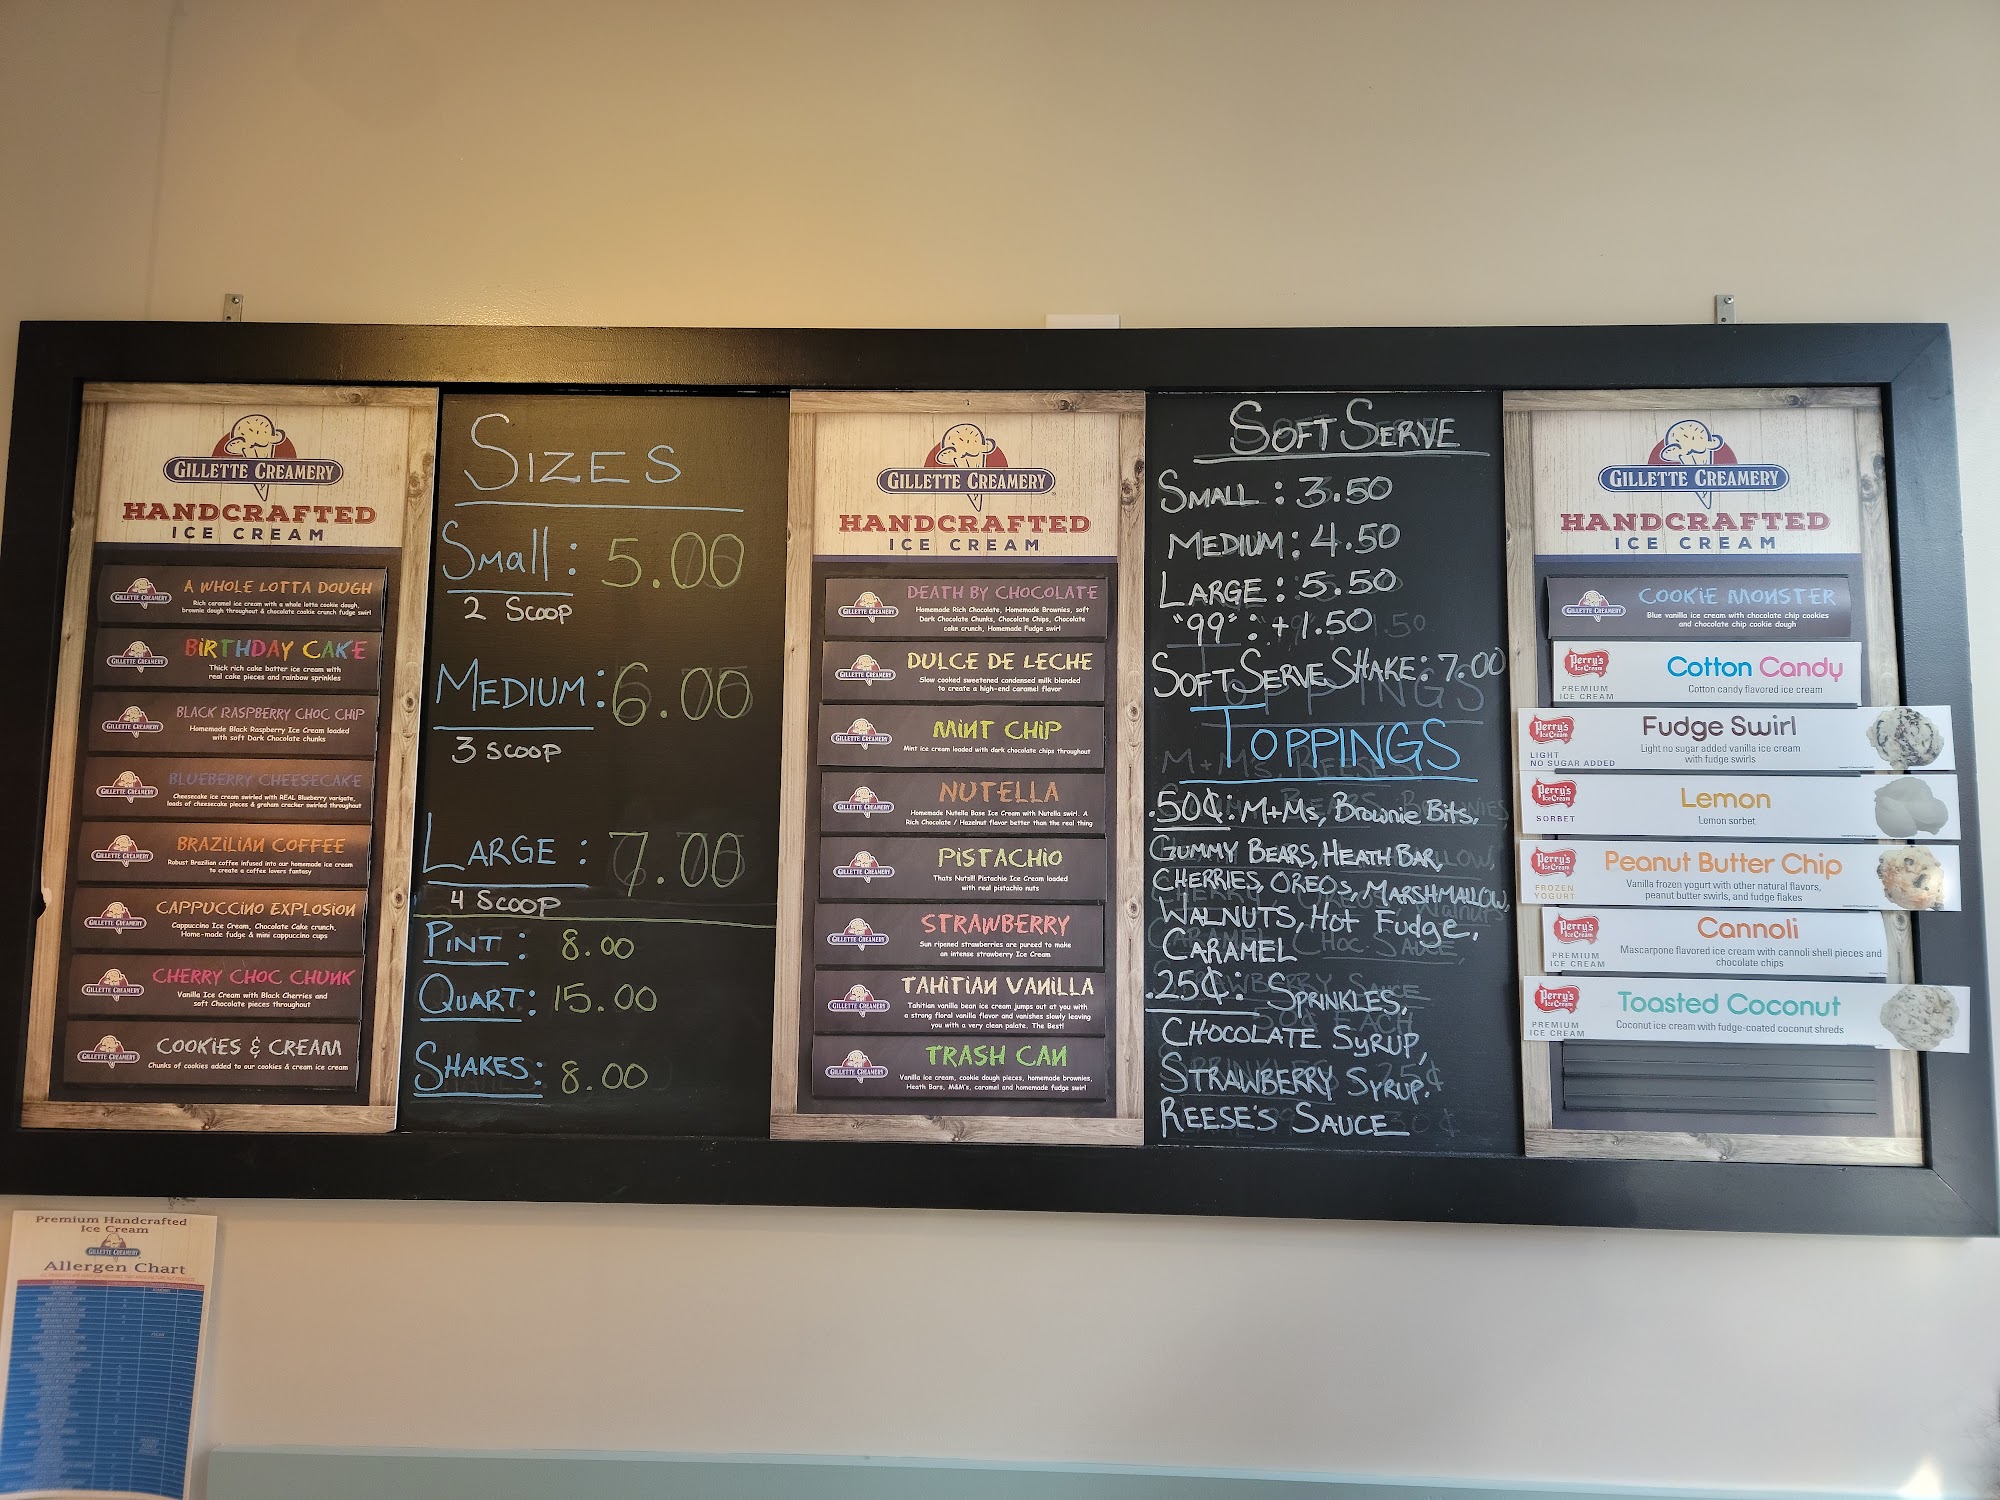 GILLETTE CREAMERY
HANDCRAFTED
ICE CREAM
A WHOLE LOTTA DOUGH
Rich caramel ice cream with a whole lotta cookie dough,
brownie dough throughout & chocolate cookie crunch fudge swirl
GILLETTE CREAMERY
BIRTHDAY CAKE
Thick rich cake batter ice cream with
real cake pieces and rainbow sprinkles
GILLETTE CREAMERY
BLACK RASPBERRY CHOC CHIP
Homemade Black Raspberry Ice Cream loaded
with soft Dark Chocolate chunks
GILLETTE CREAMERY
BLUEBERRY CHEESECAKE
Cheesecake ice cream swirled with REAL Blueberry varigate,
loads of cheesecake pieces & graham cracker swirled throughout
GILLETTE CREAMERY
BRAZILIAN COFFEE
Robust Brazilian coffee infused into our homemade ice cream
to create a coffee lovers fantasy
GILLETTE CREAMERY
CAPPUCCINO EXPLOSION
Cappuccino Ice Cream, Chocolate Cake crunch,
Home-made fudge & mini cappuccino cups
GILLETTE CREAMERY
CHERRY CHOC CHUNK
Vanilla Ice Cream with Black Cherries and
soft Chocolate pieces throughout
GILLETTE CREAMERY
COOKIES & CREAM
Chunks of cookies added to our cookies & cream ice cream
GILLETTE CREAMERY
SIZES
Small: 5.00
2 SCOOP
MEDIUM: 6.00
3 SCOOP
LARGE: 7.00
4 SCOOP
PINT: 8.00
QUART: 15.00
SHAKES: 8.00
GILLETTE CREAMERY
HANDCRAFTED
ICE CREAM
DEATH BY CHOCOLATE
Homemade Rich Chocolate, Homemade Brownies, soft
Dark Chocolate Chunks, Chocolate Chips, Chocolate
cake crunch, Homemade Fudge swirl
GILLETTE CREAMERY
DULCE DE LECHE
Slow cooked sweetened condensed milk blended
to create a high-end caramel flavor
GILLETTE CREAMERY
MINT CHIP
Mint ice cream loaded with dark chocolate chips throughout
GILLETTE CREAMERY
NUTELLA
Homemade Nutella Base Ice Cream with Nutella swirl. A
Rich Chocolate / Hazelnut flavor better than the real thing
GILLETTE CREAMERY
PISTACHIO
Thats Nuts!!! Pistachio Ice Cream loaded
with real pistachio nuts
GILLETTE CREAMERY
STRAWBERRY
Sun ripened strawberries are pureed to make
an intense strawberry Ice Cream
GILLETTE CREAMERY
TAHITIAN VANILLA
Tahitian vanilla bean ice cream jumps out at you with
a strong floral vanilla flavor and vanishes slowly leaving
you with a very clean palate. The Best!
GILLETTE CREAMERY
TRASH CAN
Vanilla ice cream, cookie dough pieces, homemade brownies,
Heath Bars, M&M's, caramel and homemade fudge swirl
GILLETTE CREAMERY
SOFT SERVE
SMALL: 3.50
MEDIUM: 4.50
LARGE: 5.50
"99": +1.50
SOFT SERVE SHAKE: 7.00
TOPPINGS
.50¢: M+Ms, Brownie Bits,
GUMMY BEARS, HEATH BAR,
CHERRIES, OREOS, MARSHMALLOW,
WALNUTS, Hot Fudge,
CARAMEL
.25¢: SPRINKLES,
CHOCOLATE SYRUP,
STRAWBERRY SYRUP.
REESE'S SAUCE
GILLETTE CREAMERY
HANDCRAFTED
ICE CREAM
COOKIE MONSTER
Blue vanilla ice cream with chocolate chip cookies
and chocolate chip cookie dough
GILLETTE CREAMERY
Perry's
Ice Cream
PREMIUM
ICE CREAM
Cotton Candy
Cotton candy flavored ice cream
Perry's
Ice Cream
LIGHT
NO SUGAR ADDED
Fudge Swirl
Light no sugar added vanilla ice cream
with fudge swirls
Perry's
Ice Cream
SORBET
Lemon
Lemon sorbet
Perry's
Ice Cream
FROZEN
YOGURT
Peanut Butter Chip
Vanilla frozen yogurt with other natural flavors,
peanut butter swirls, and fudge flakes
Perry's
Ice Cream
PREMIUM
ICE CREAM
Cannoli
Mascarpone flavored ice cream with cannoli shell pieces and
chocolate chips
Perry's
Ice Cream
PREMIUM
ICE CREAM
Toasted Coconut
Coconut ice cream with fudge-coated coconut shreds
Premium Handcrafted
Ice Cream
GILLETTE CREAMERY
Allergen Chart